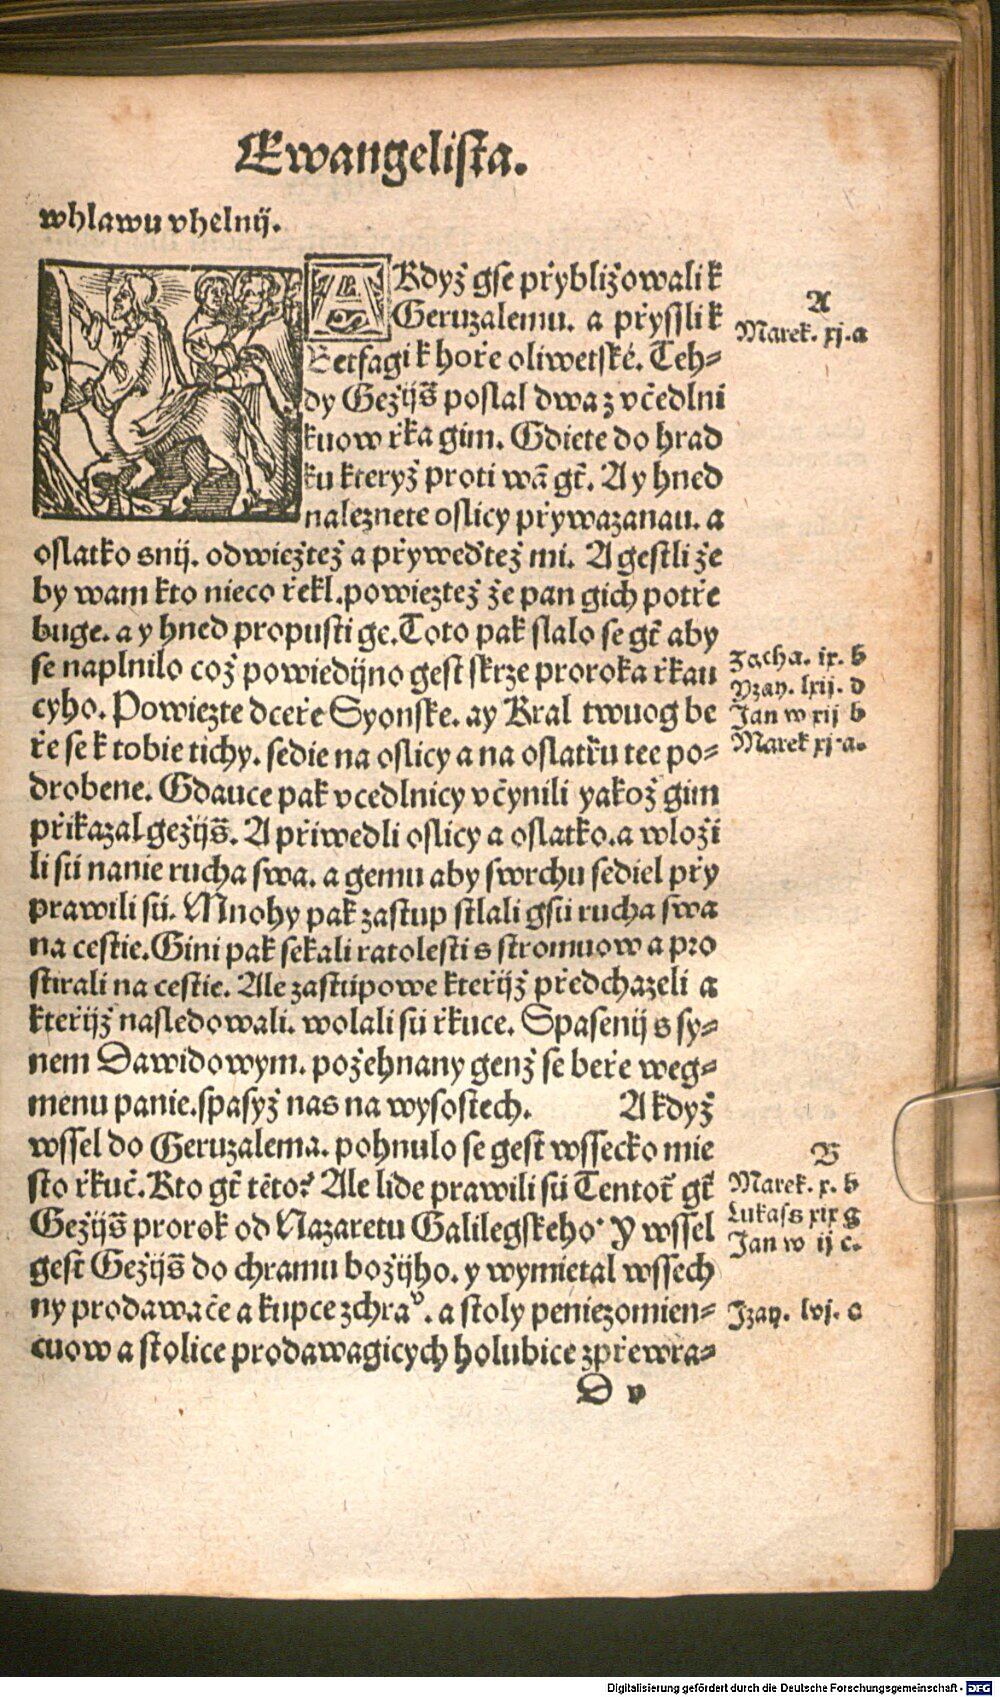 Ewangelista.
whlawu vhelnij.
A Když gse přybližowali k
Geruzalemu. a přyssli k
Betfagi k hoře oliwetské. Teh=
dy Gežijš poslal dwa z včedlni
kuow řka gim. Gdiete do hrad
ku kteryž proti wā gt̄. A y hned
naleznete oslicy přywazanau. a
oslatko snij. odwiežtež a přyweďtež mi. A gestli že
by wam kto nieco řekl. powieztež že pan gich potře
buge. a y hned propusti ge. Toto pak stalo se gt̄ aby
se naplnilo což powiedijno gest skrze proroka řkau
cyho. Powiezte dceře Syonske. ay Kral twuog be
ře se k tobie tichy. sedie na oslicy a na oslatřu tee po=
drobene. Gdauce pak vcedlnicy včynili yakož gim
přikazal gežijš. A přiwedli oslicy a oslatko. a wloži
li sú nanie rucha swa. a gemu aby swrchu sediel pří
prawili sú. Mnohy pak zastup stlali gsú rucha swa
na cestie. Gini pak sekali ratolesti s stromuow a pro
stirali na cestie. Ale zastupowe kteřijž předchazeli a
kteřijž nasledowali. wolali sú řkuce. Spasenij s sy=
nem Dawidowym. požehnany genž se beře weg=
menu panie. spasyž nas na wysostech. A když
wssel do Geruzalema. pohnulo se gest wssecko mie
sto řkuč. Kto gt̄ tēto? Ale lide prawili sú Tentoť gt̄
Gežijš prorok od Nazaretu Galilegskeho. Y wssel
gest Gežijš do chramu božijho. y wymietal wssech
ny prodawače a kupce z chraͮ. a stoly peniezomien=
cuow a stolice prodawagicych holubice zpřewra=
D v
A
Marek. xj. a
Zacha. ix. b
Yzay. lxij. d
Jan w xij b
Marek xj. a.
B
Marek. x. b
Lukass xix g
Jan w ij c.
Jzay. lvj. c
Digitalisierung gefördert durch die Deutsche Forschungsgemeinschaft - DFG